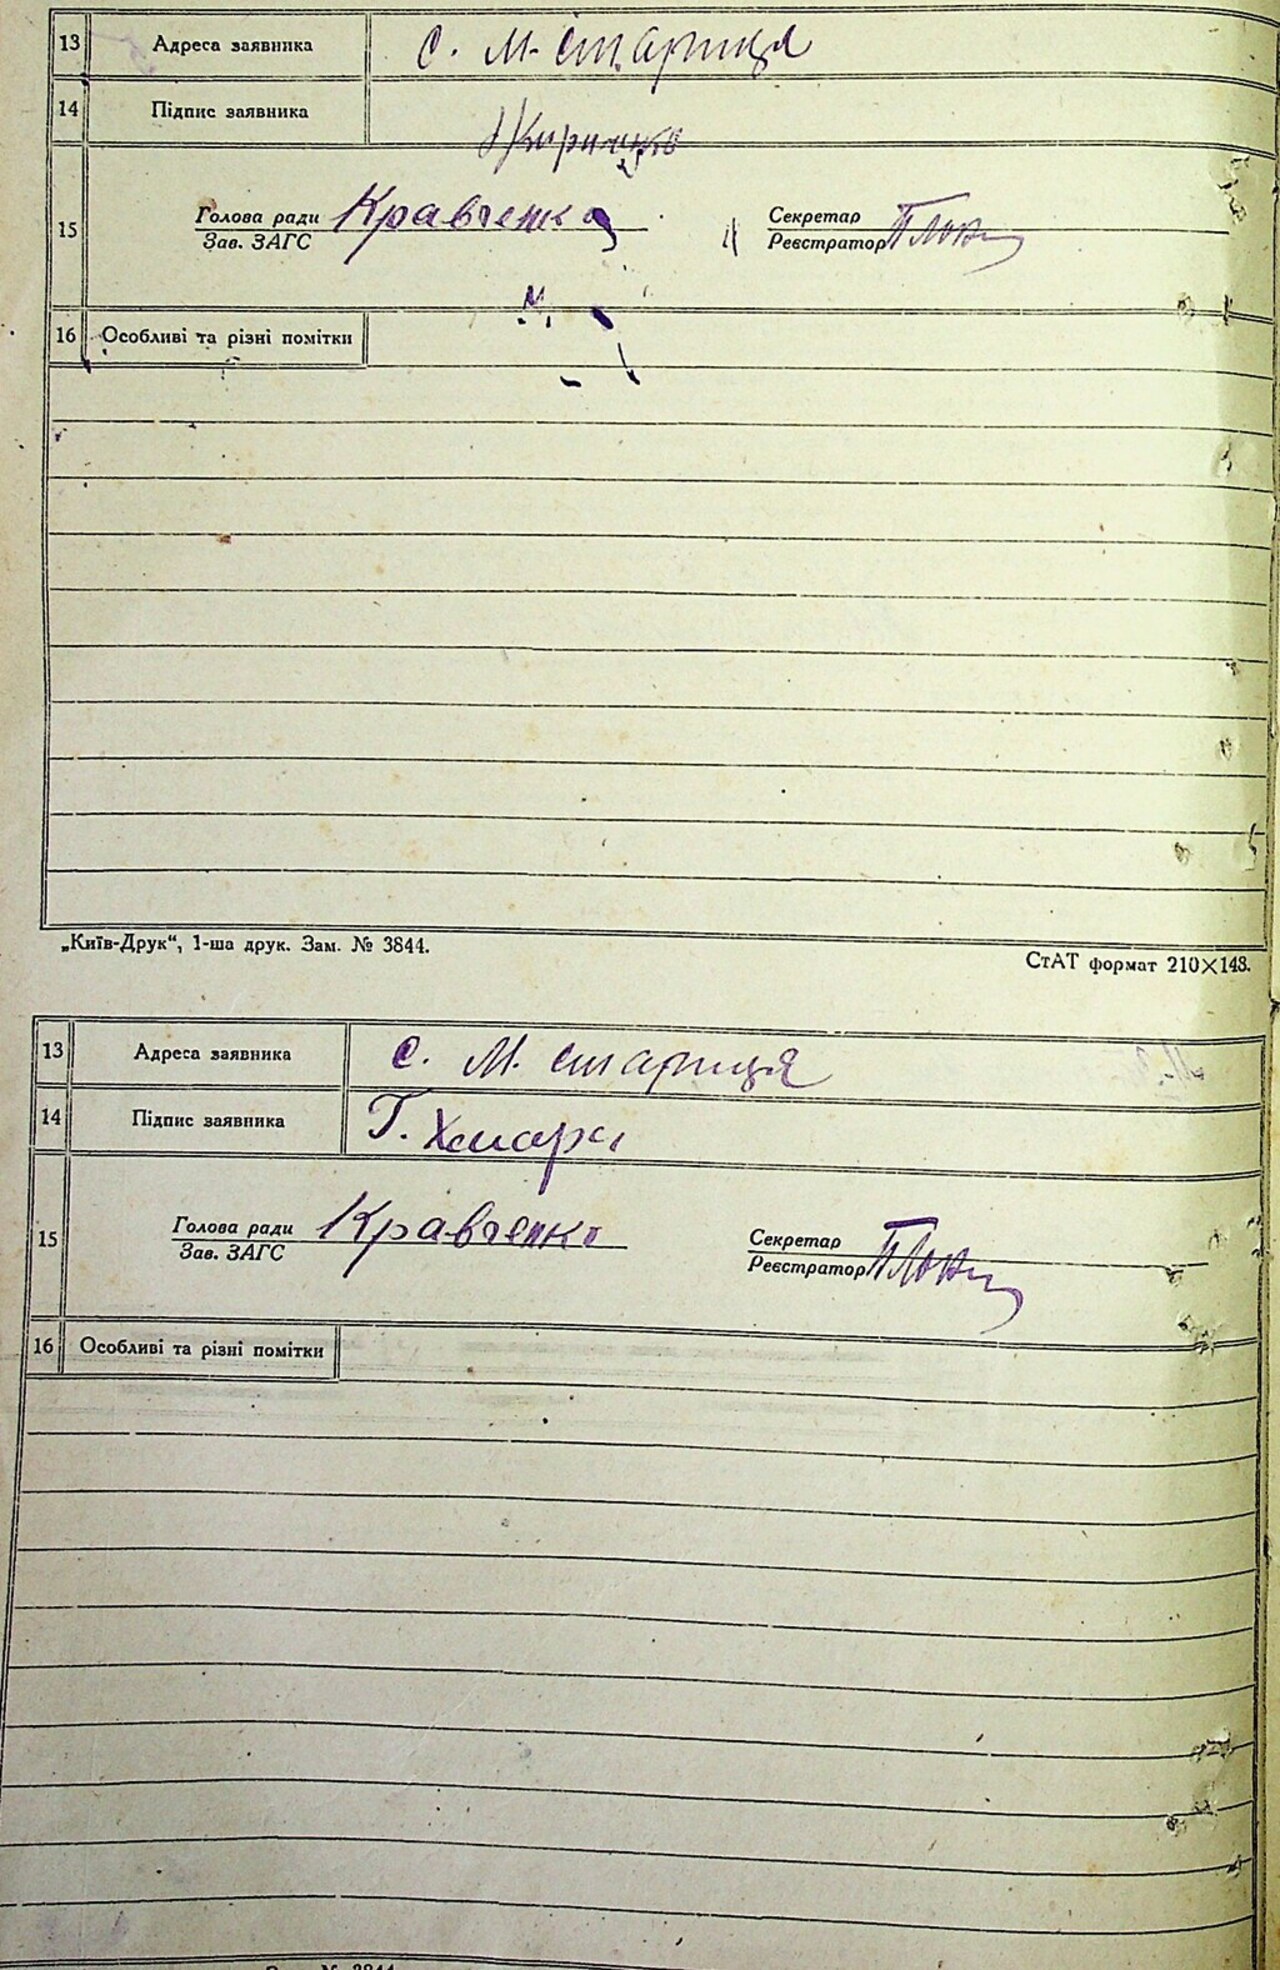 13 Адреса заявника с. М. стариця
14 Підпис заявника Кириченко
15 Голова ради Кравченко Секретар
Зав. ЗАГС Реєстратор
16 Особливі та різні помітки
„Київ-Друк“, 1-ша друк. Зам. № 3844.
СтАТ формат 210×148.
13 Адреса заявника с. М. стариця
14 Підпис заявника Г. Хмара
15 Голова ради Кравченко Секретар
Зав. ЗАГС Реєстратор
16 Особливі та різні помітки